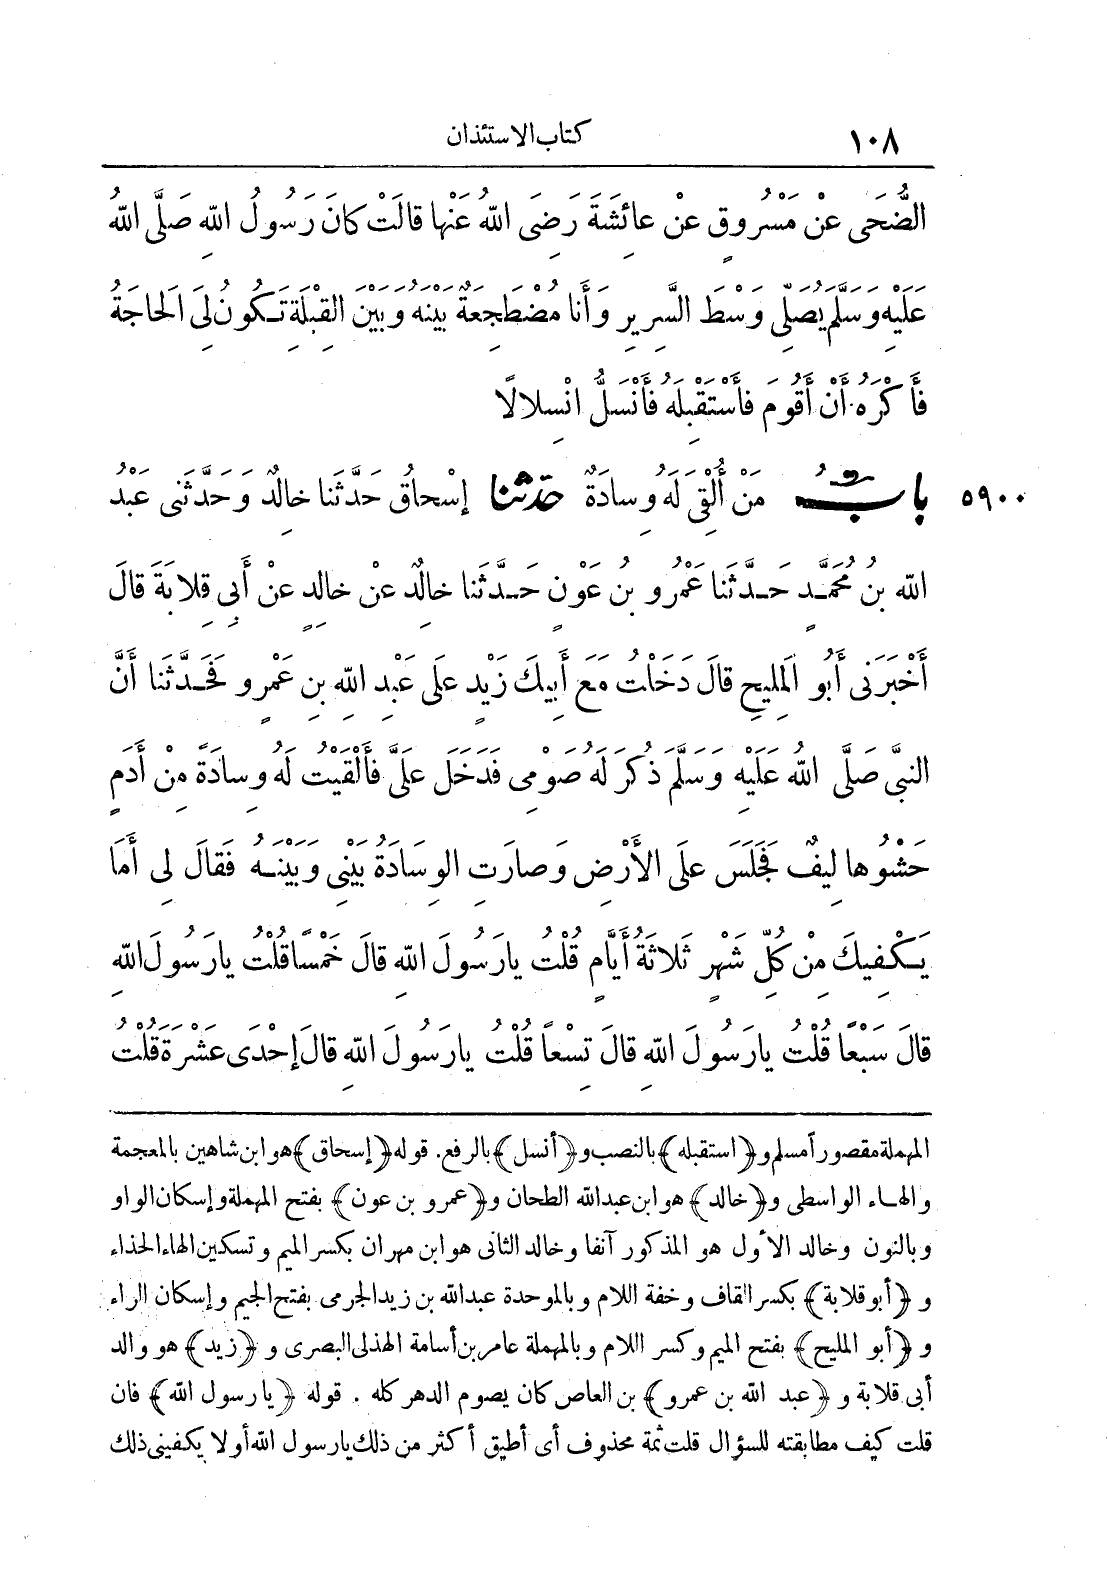 ١٠٨ كتاب الاستئذان
الضُّحَى عَنْ مَسْرُوقٍ عَنْ عائِشَةَ رَضِىَ اللهُ عَنْها قالَتْ كانَ رَسُولُ اللهِ صَلَّى اللهُ
عَلَيْهِ وَسَلَّمَ يُصَلِّى وَسْطَ السَّرِيرِ وَأَنا مُضْطَجِعَةٌ بَيْنَهُ وَبَيْنَ القِبْلَةِ تَكُونُ لِىَ الحَاجَةُ
فَأَكْرَهُ أَنْ أَقُومَ فَأَسْتَقْبِلَهُ فَأَنْسَلُّ انْسِلالًا
٥٩٠٠ بابُ مَنْ أُلْقِىَ لَهُ وِسادَةٌ حَدَّثنا إِسْحاقُ حَدَّثَنا خالِدٌ وَحَدَّثَنى عَبْدُ
اللهِ بنُ مُحَمَّدٍ حَدَّثَنا عَمْرُو بنُ عَوْنٍ حَدَّثَنا خالِدٌ عَنْ خالِدٍ عَنْ أَبِى قِلابَةَ قالَ
أَخْبَرَنى أَبُو المَلِيحِ قالَ دَخَلْتُ مَعَ أَبِيكَ زَيْدٍ عَلَى عَبْدِ اللهِ بنِ عَمْرٍو فَحَدَّثَنا أَنَّ
النبىَّ صَلَّى اللهُ عَلَيْهِ وَسَلَّمَ ذُكِرَ لَهُ صَوْمِى فَدَخَلَ عَلَىَّ فَأَلْقَيْتُ لَهُ وِسادَةً مِنْ أَدَمٍ
حَشْوُها لِيفٌ فَجَلَسَ عَلَى الأَرْضِ وَصارَتِ الوِسَادَةُ بَيْنِى وَبَيْنَهُ فَقالَ لِى أَمَا
يَكْفِيكَ مِنْ كُلِّ شَهْرٍ ثَلاثَةُ أَيَّامٍ قُلْتُ يارَسُولَ اللهِ قالَ خَمْسًا قُلْتُ يارَسُولَ اللهِ
قالَ سَبْعًا قُلْتُ يارَسُولَ اللهِ قالَ تِسْعًا قُلْتُ يارَسُولَ اللهِ قالَ إِحْدَى عَشْرَةَ قُلْتُ
المهملة مقصورا مسلم و﴿استقبله﴾ بالنصب و﴿أنسل﴾ بالرفع. قوله ﴿إسحاق﴾ هو ابن شاهين بالمعجمة
والهاء الواسطى و﴿خالد﴾ هو ابن عبدالله الطحان و﴿عمرو بن عون﴾ بفتح المهملة وإسكان الواو
وبالنون وخالد الأول هو المذكور آنفا وخالد الثانى هو ابن مهران بكسر الميم وتسكين الهاء الحذاء
و ﴿أبو قلابة﴾ بكسر القاف وخفة اللام وبالموحدة عبدالله بن زيد الجرمى بفتح الجيم وإسكان الراء
و ﴿أبو المليح﴾ بفتح الميم وكسر اللام وبالمهملة عامر بن أسامة الهذلى البصرى و ﴿زيد﴾ هو والد
أبى قلابة و ﴿عبد الله بن عمرو﴾ بن العاص كان يصوم الدهر كله . قوله ﴿يارسول الله﴾ فان
قلت كيف مطابقته للسؤال قلت ثمة محذوف أى أطيق أكثر من ذلك يارسول الله أو لا يكفينى ذلك